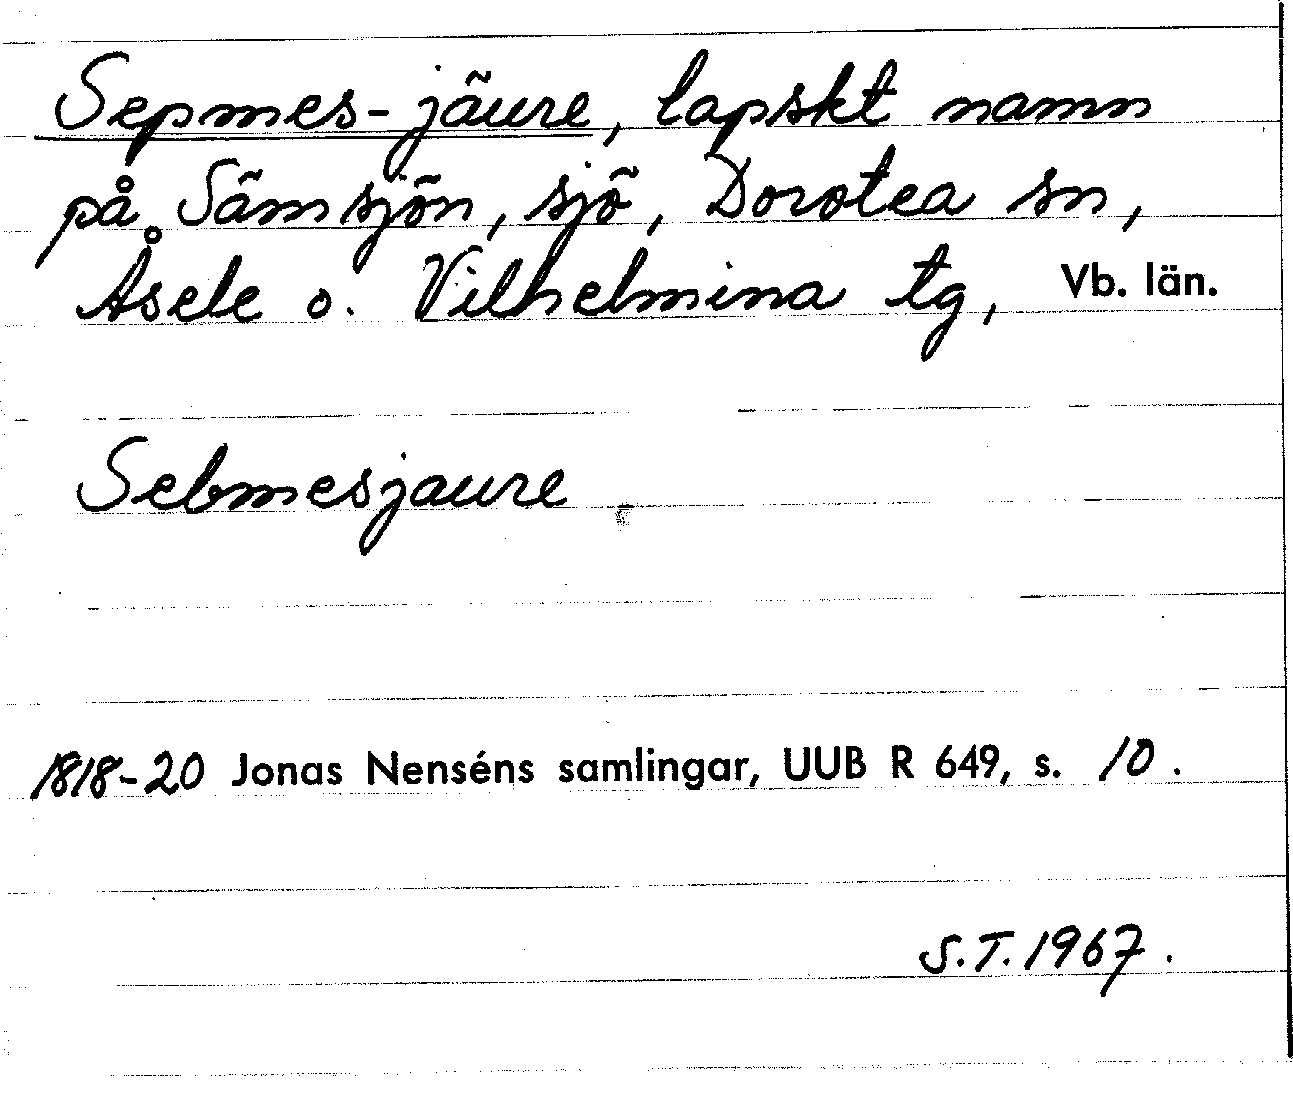 Sepmes-jäure, lapskt namn
på Sämsjön, sjö, Dorotea sn,
Åsele o. Vilhelmina tg, Vb. län.
Sebmesjaure
1818-20 Jonas Nenséns samlingar, UUB R 649, s. 10.
S.T. 1967.